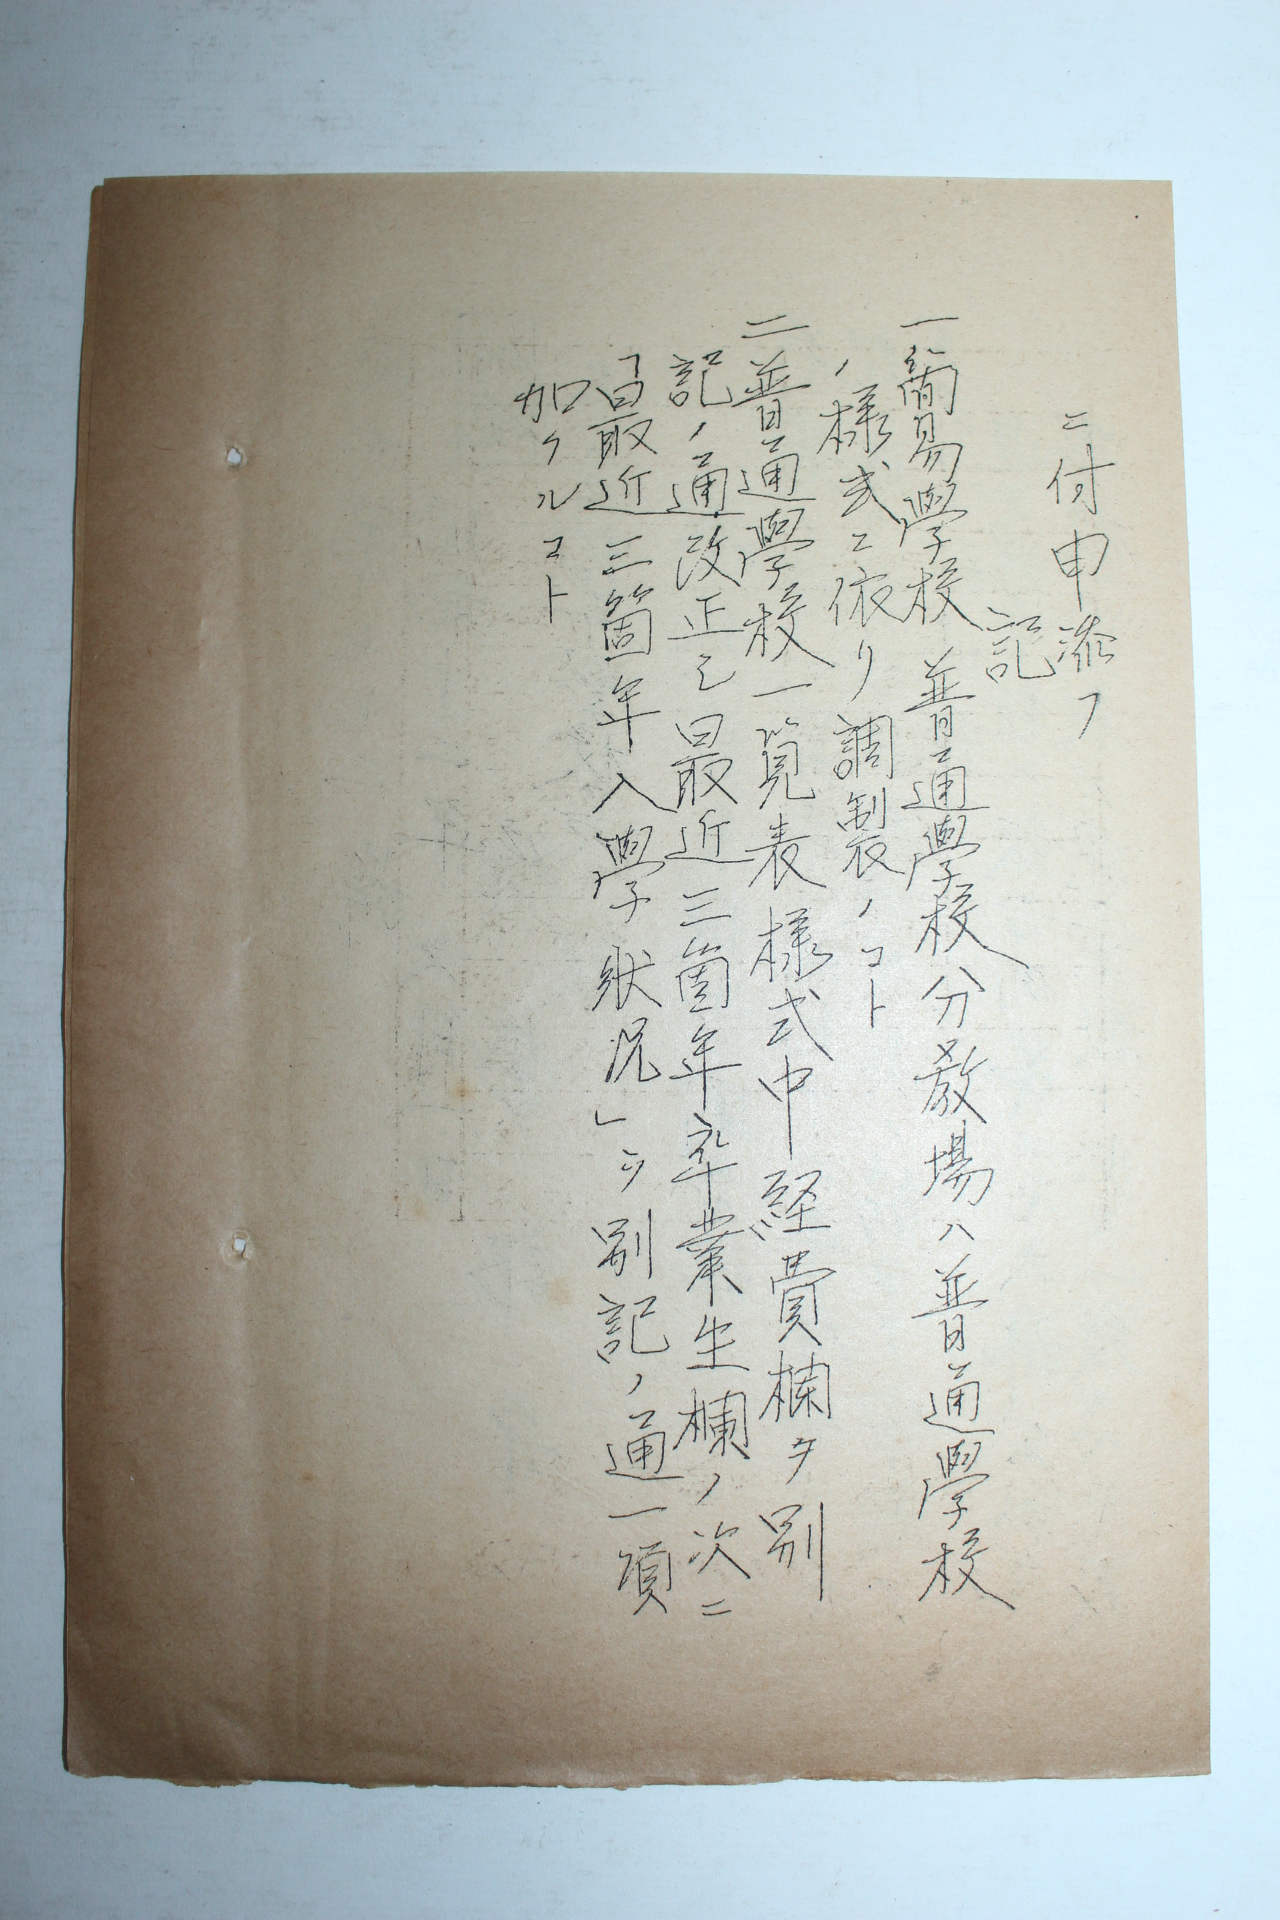 ニ付申添フ
記
一簡易學校 普通學校分教場ハ普通學校
ノ様式ニ依リ調製ノコト
二普通學校一覧表様式中経費欄ヲ別
記ノ通改正シ最近三箇年卒業生欄ノ次ニ
「最近三箇年入學狀況」ヲ別記ノ通一項
加フルコト